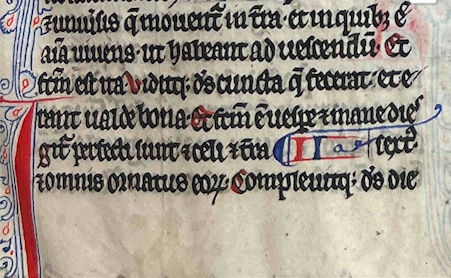 ⁊ uniũsis q̃ movent̃ in t̃ra · et in quibꝫ ē
aĩa vivens · ut habeant ad vescendū · Et
fc̃m est ita · Viditqꝫ d̃s cuncta q̃ fecerat · et e
rant valde bona · Et fc̃m ē vesꝑe ⁊ mane dies
git̃ perfecti sunt celi ⁊ t̃ra II sextꝰ
⁊ omnis ornatus eoꝝ · Complevitqꝫ d̃s die